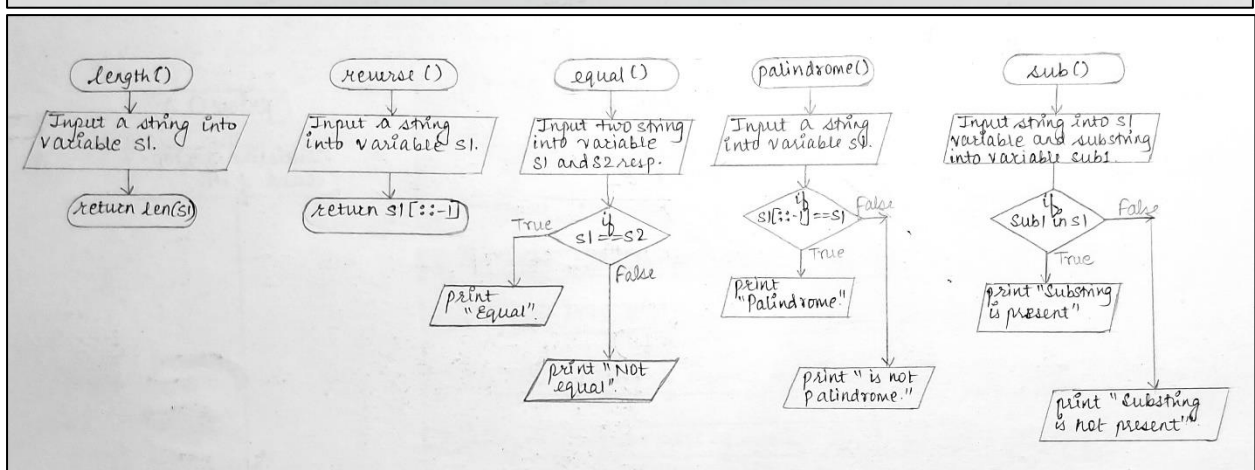 length()
Input a string into
variable S1.
return len(S1)
reverse ()
Input a string
into variable S1.
return S1[::-1]
equal ()
Input two string
into variable
S1 and S2 resp.
if
S1==S2
True
False
print
"Equal".
print "Not
equal".
palindrome()
Input a string
into variable S1.
if
S1[::-1]==S1
False
True
print
"Palindrome."
print " is not
palindrome."
sub()
Input string into S1
variable and substring
into variable sub1.
if
Sub1 in S1
False
True
print "Substring
is present"
print "Substring
is not present".